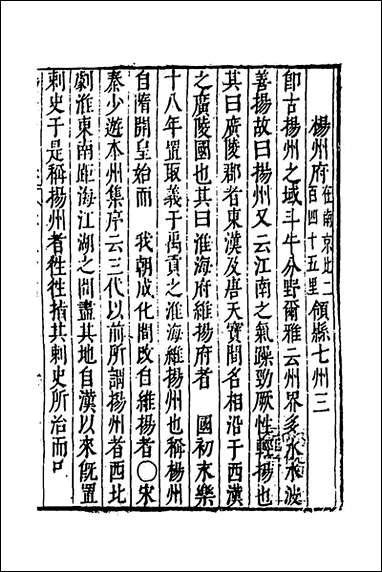 楊州府在南京北二百四十五里領縣七州三
即古揚州之域斗牛分野爾雅云州界多水水波
善揚故曰揚州又云江南之氣躁勁厥性輕揚也
其曰廣陵郡者東漢及唐天寶間名相沿于西漢
之廣陵國也其曰淮海府維揚府者　國初末樂
十八年置取義于禹貢之淮海維揚州也稱楊州
自隋開皇始而　我朝成化間改台維揚者○宋
秦少遊本州集序云三代以前所謂揚州者西北
劇淮東南距海江湖之間盡其地自漢以來旣置
刺史于是稱揚州者牲牲指其刺史所治而口